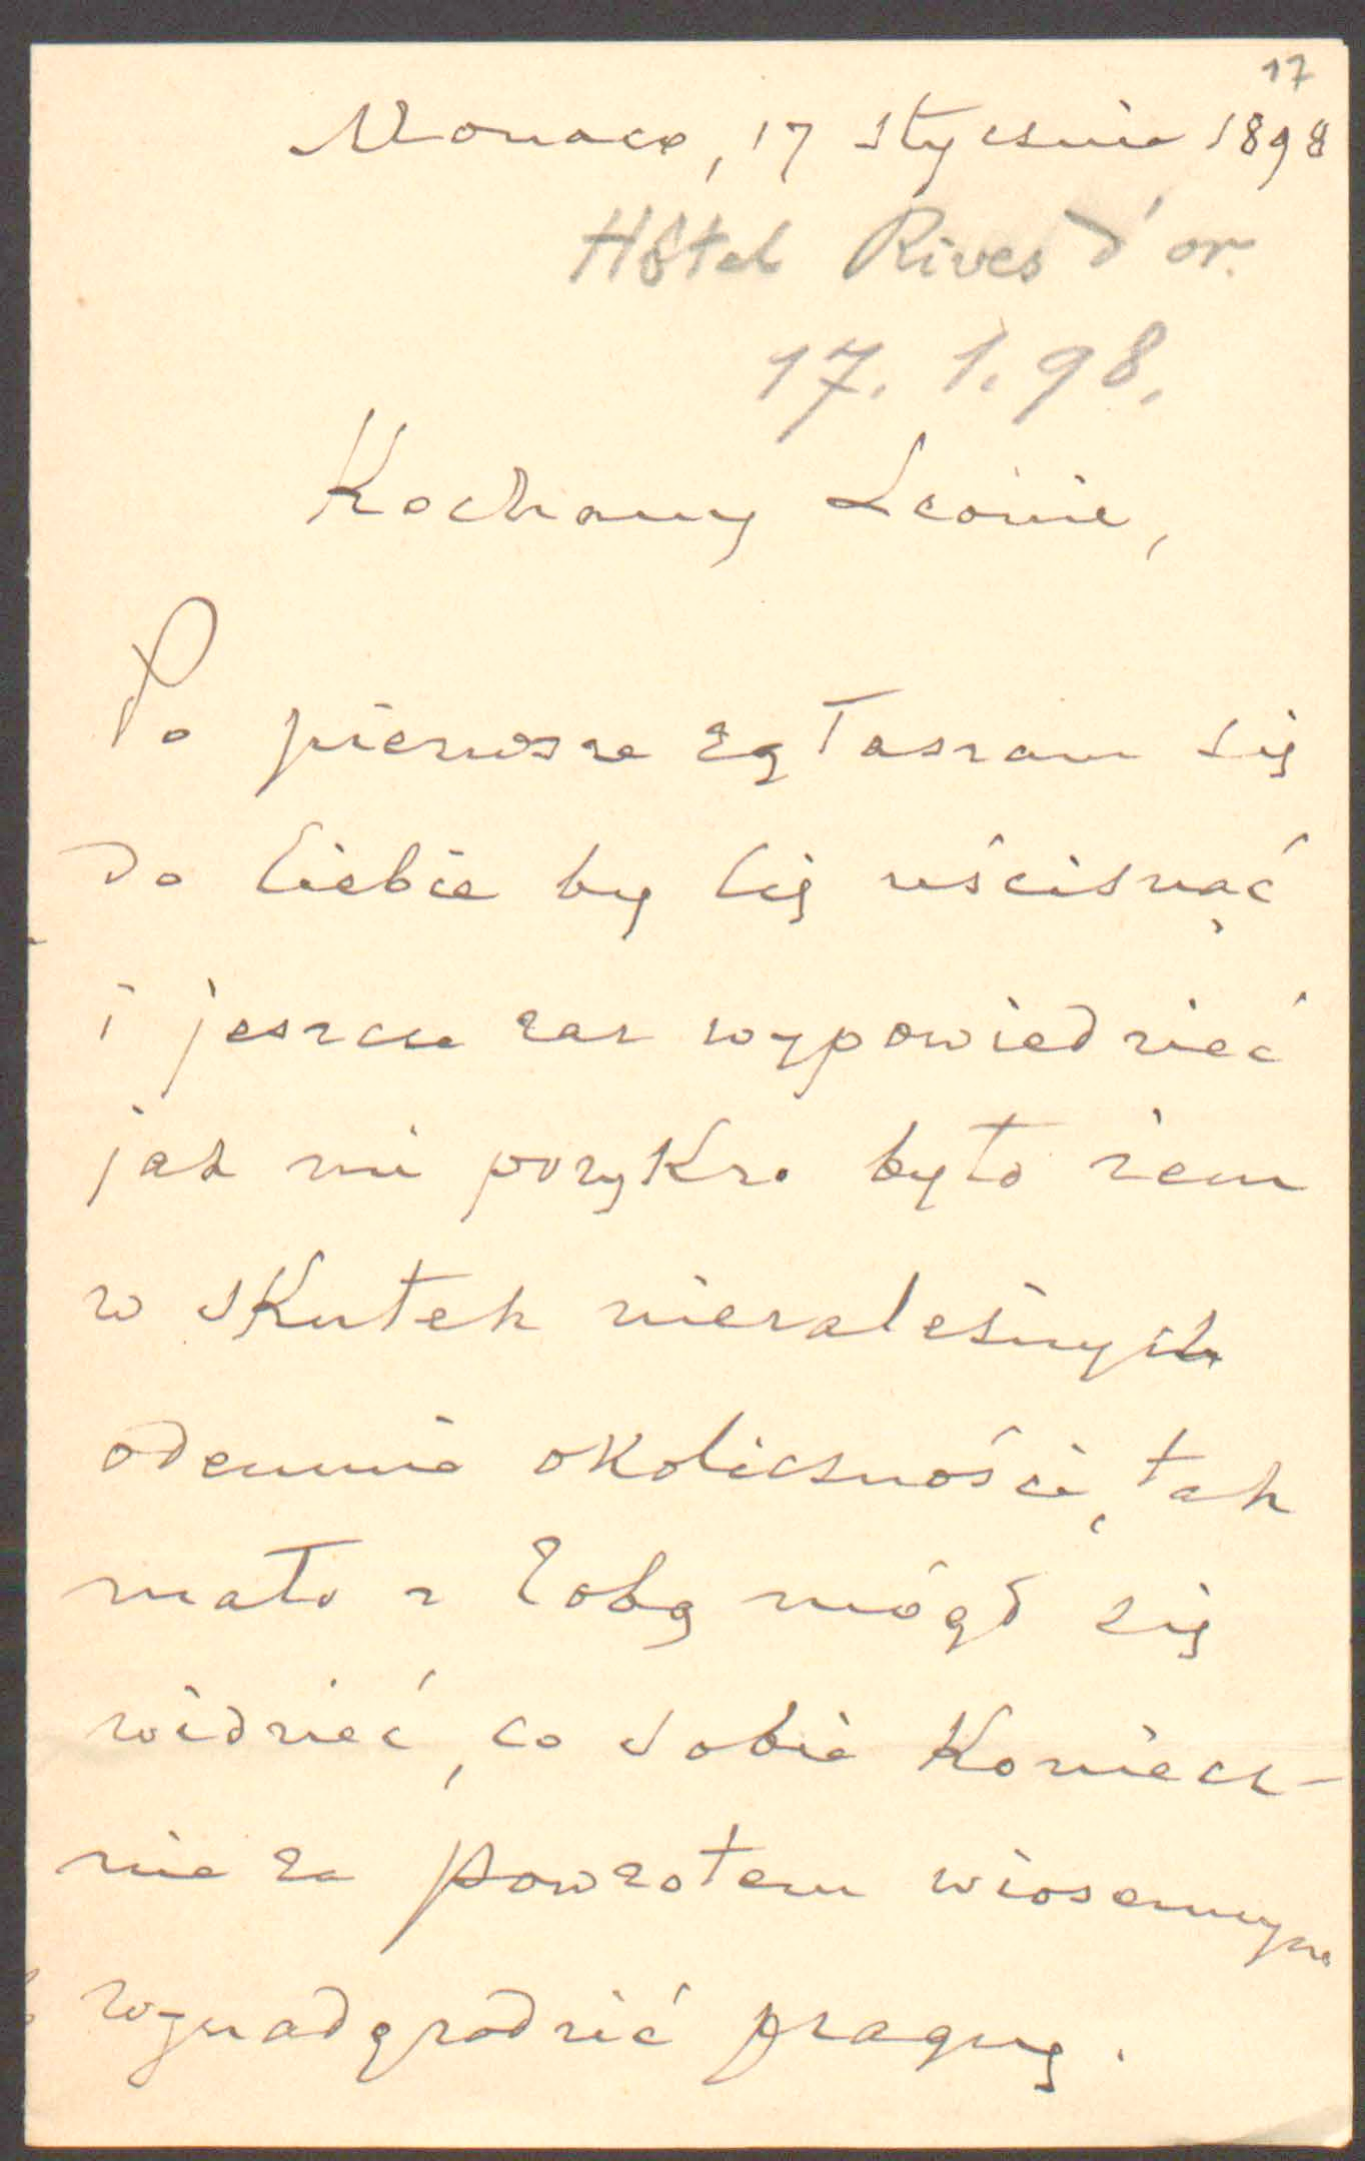 17
Monaco, 17 stycznia 1898
Hôtel Rives d'or.
17. 1. 98.
Kochany Leonie,
Po pierwsze zgłaszam się
do Ciebie by Cię uścisnąć
i jeszcze raz wypowiedzieć
jak mi przykro było żem
w skutek niezależnych
odemnie okoliczności, tak
mało z Tobą mógł się
widzieć, co sobie koniecz-
nie za powrotem wiosennym
wynadgrodzić pragnę.